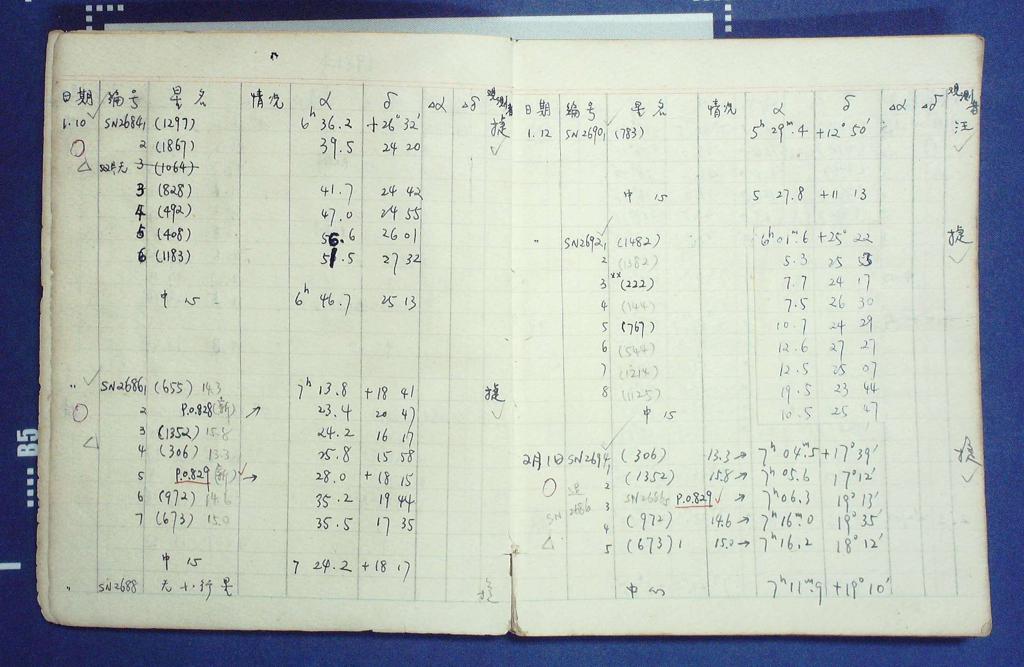 日期 编号 星名 情况 α δ Δα Δδ 观测者
1.10 SN2684 1 (1297) 6h 36.2 +26° 32' 捷
2 (1867) 39.5 24 20
3 (1064)
3 (828) 41.7 24 42
4 (492) 47.0 24 55
5 (408) 56.6 26 01
6 (1183) 51.5 27 32
中 15 6h 46.7 25 13
" SN2686 1 (655) 14.3 7h 13.8 +18 41 捷
2 P.O.828 (新) → 23.4 20 47
3 (1352) 15.8 24.2 16 17
4 (306) 13.3 25.8 15 58
5 P.O.829 (新) → 28.0 +18 15
6 (972) 14.6 35.2 19 44
7 (673) 15.0 35.5 17 35
中 15 7 24.2 +18 17
" SN2688 无 星
日期 编号 星名 情况 α δ Δα Δδ 观测者
1.12 SN2690 1 (783) 5h 29m.4 +12° 50' 汪
中 15 5 27.8 +11 13
" SN2692 1 (1482) 6h 01m.6 +25° 22 捷
2 (1382) 5.3 25
3 xx(222) 7.7 24 17
4 (144) 7.5 26 30
5 (767) 10.7 24 29
6 (544) 12.6 27 27
7 (1214) 12.5 25 07
8 (1125) 19.5 23 44
中 15 10.5 25 47
2月1日 SN2694 1 (306) 13.3→ 7h 04m.5 +17° 39' 捷
2 (1352) 15.8→ 7h 05.6 17° 12'
是 SN2686 3 SN2686 5 P.O.829 → 7h 06.3 19° 13'
4 (972) 14.6→ 7h 16m.0 19° 35'
5 (673) 15.0→ 7h 16.2 18° 12'
中 7h 11m.9 +19° 10'
B5